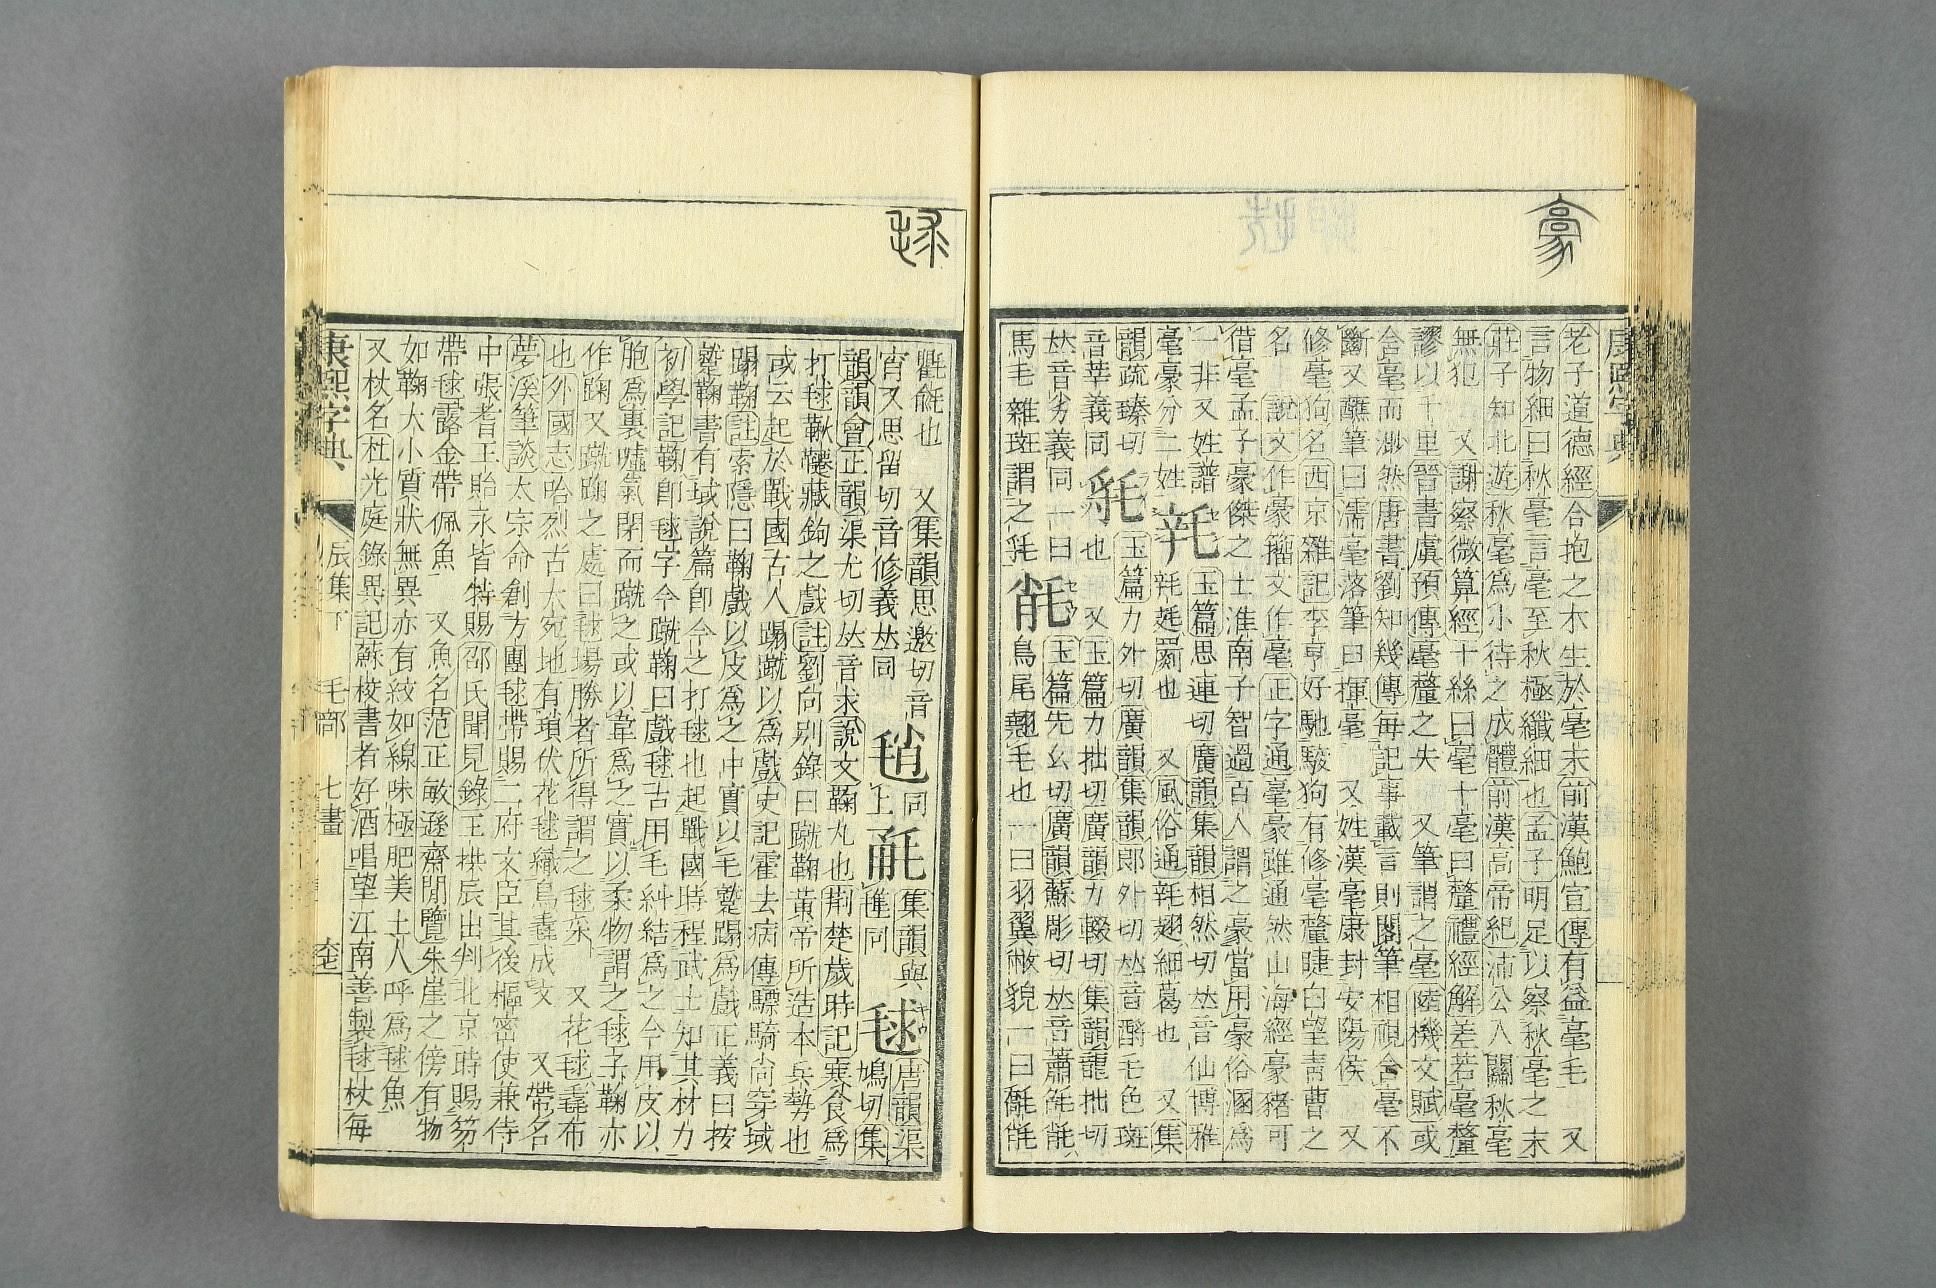 豪
康熙字典
老子道德經合抱之木生於毫末前漢鮑宣傳有益毫毛 又
言物細曰秋毫言毫至秋極纖細也孟子明足以察秋毫之末
莊子知北遊秋毫爲小待之成體前漢高帝紀沛公入關秋毫
無犯 又謝察微算經十絲曰毫十毫曰釐禮經解差若毫釐
謬以千里晉書虞預傳毫釐之失 又筆謂之毫陸機文賦或
含毫而渺然唐書劉知幾傳每記事載言則閣筆相視含毫不
斷又蘸筆曰濡毫落筆曰揮毫 又姓漢毫康封安陽侯 又
修毫狗名西京雜記李亨好馳駿狗有修毫釐睫白望靑曹之
名 說文作豪籀文作毫正字通毫豪雖通然山海經豪豬可
借毫孟子豪傑之士淮南子智過百人謂之豪當用豪俗溷爲
一非又姓譜 玉篇思連切廣韻集韻相然切𠀤音仙博雅
毫豪分二姓 毨 毨𣯛罽也 又風俗通毨翅細葛也 又集
韻疏臻切 玉篇力外切廣韻集韻郎外切𠀤音酹毛色斑
音莘義同 也 又玉篇力拙切廣韻力輟切集韻龍拙切
𠀤音劣義同一曰 玉篇先幺切廣韻蘇彫切𠀤音蕭
馬毛雜斑謂之 鳥尾翹毛也 一曰羽翼敝貌一曰
也 又集韻思邀切音 毢 同
宵又思留切音修義𠀤同 上 集韻與 同 毬 唐韻渠鳩切集
韻韻會正韻渠尤切𠀤音求說文鞠丸也荆楚歲時記寒食爲
打毬鞦韆藏鉤之戲註劉向別錄曰蹴鞠黃帝所造本兵勢也
或云起於戰國古人蹋蹴以爲戲史記霍去病傳驃騎尙穿域
蹋鞠註索隱曰鞠戲以皮爲之中實以毛蹵蹋爲戲正義曰按
蹵鞠書有域說篇卽今之打毬也起戰國時程武士知其材力
初學記鞠卽毬字今蹴鞠曰戲毬古用毛糾結爲之今用皮以
胞爲裏噓氣閉而蹴之或以韋爲之實以柔物謂之毬子鞠亦
作踘又蹴踘之處曰毬場勝者所得謂之毬采 又花毬毳布
也外國志哈烈古大宛地有瑣伏花毬織鳥毳成文 又帶名
夢溪筆談太宗命創方團毬帶賜二府文臣其後樞密使兼侍
中張耆王貽永皆特賜邵氏聞見錄王拱辰出判北京時賜笏
帶毬露金帶佩魚 又魚名范正敏遯齋閒覽朱崖之傍有物
如鞠大小質狀無異亦有紋如線味極肥美土人呼爲毬魚
又杖名杜光庭錄異記蘇校書者好酒唱望江南善製毬杖每
康熙字典 辰集下 毛部 七畫